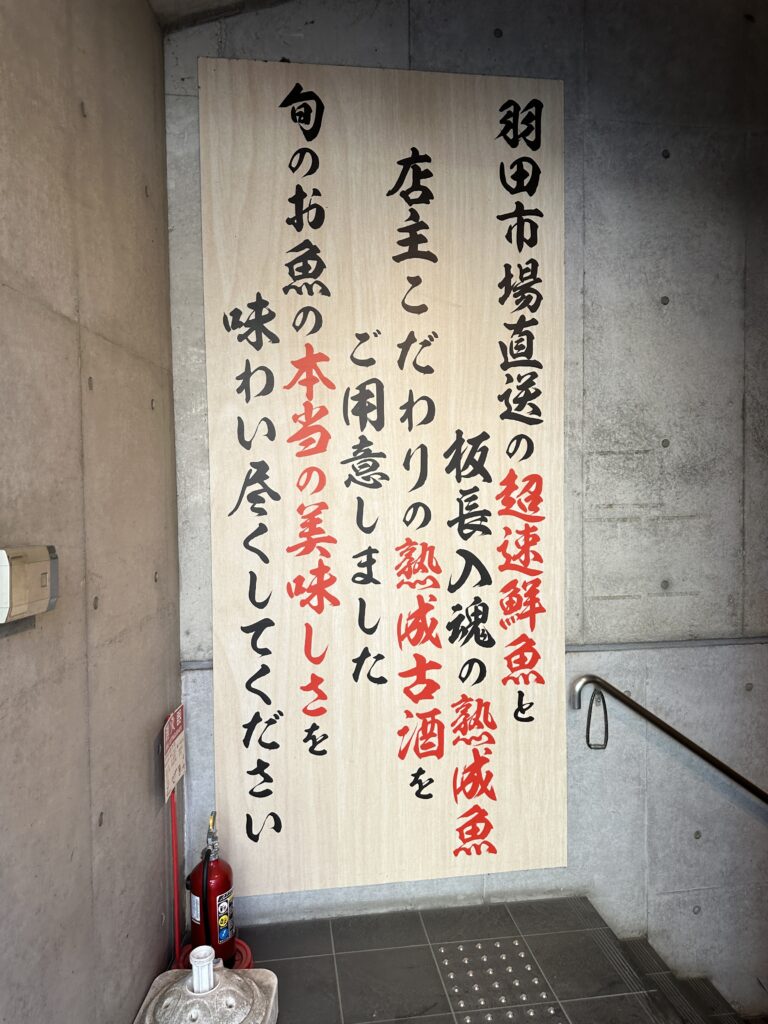 羽田市場直送の超速鮮魚と
板長入魂の熟成魚
店主こだわりの熟成古酒を
ご用意しました
旬のお魚の本当の美味しさを
味わい尽くしてください